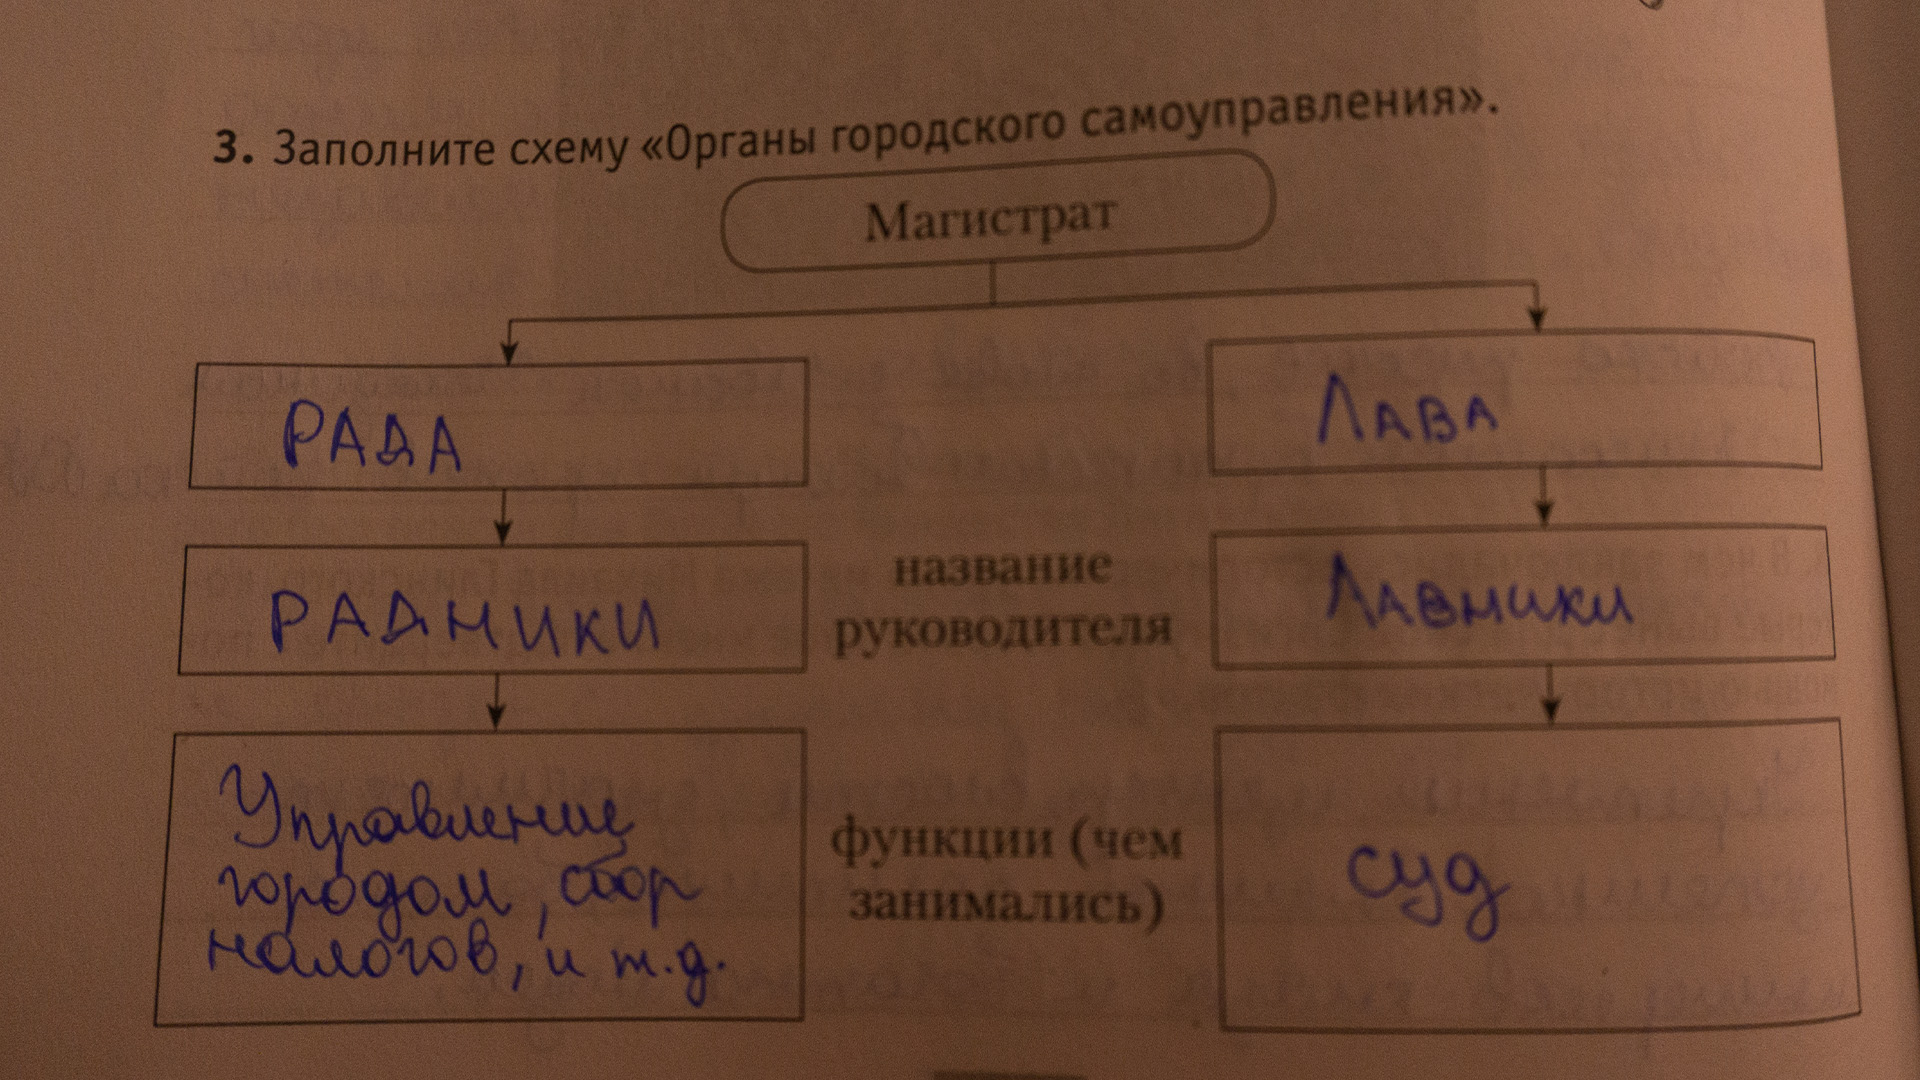 3. Заполните схему «Органы городского самоуправления».
Магистрат
РАДА
ЛАВА
РАДНИКИ
название
руководителя
Лавники
Управление
городом, сбор
налогов, и т.д.
функции (чем
занимались)
суд